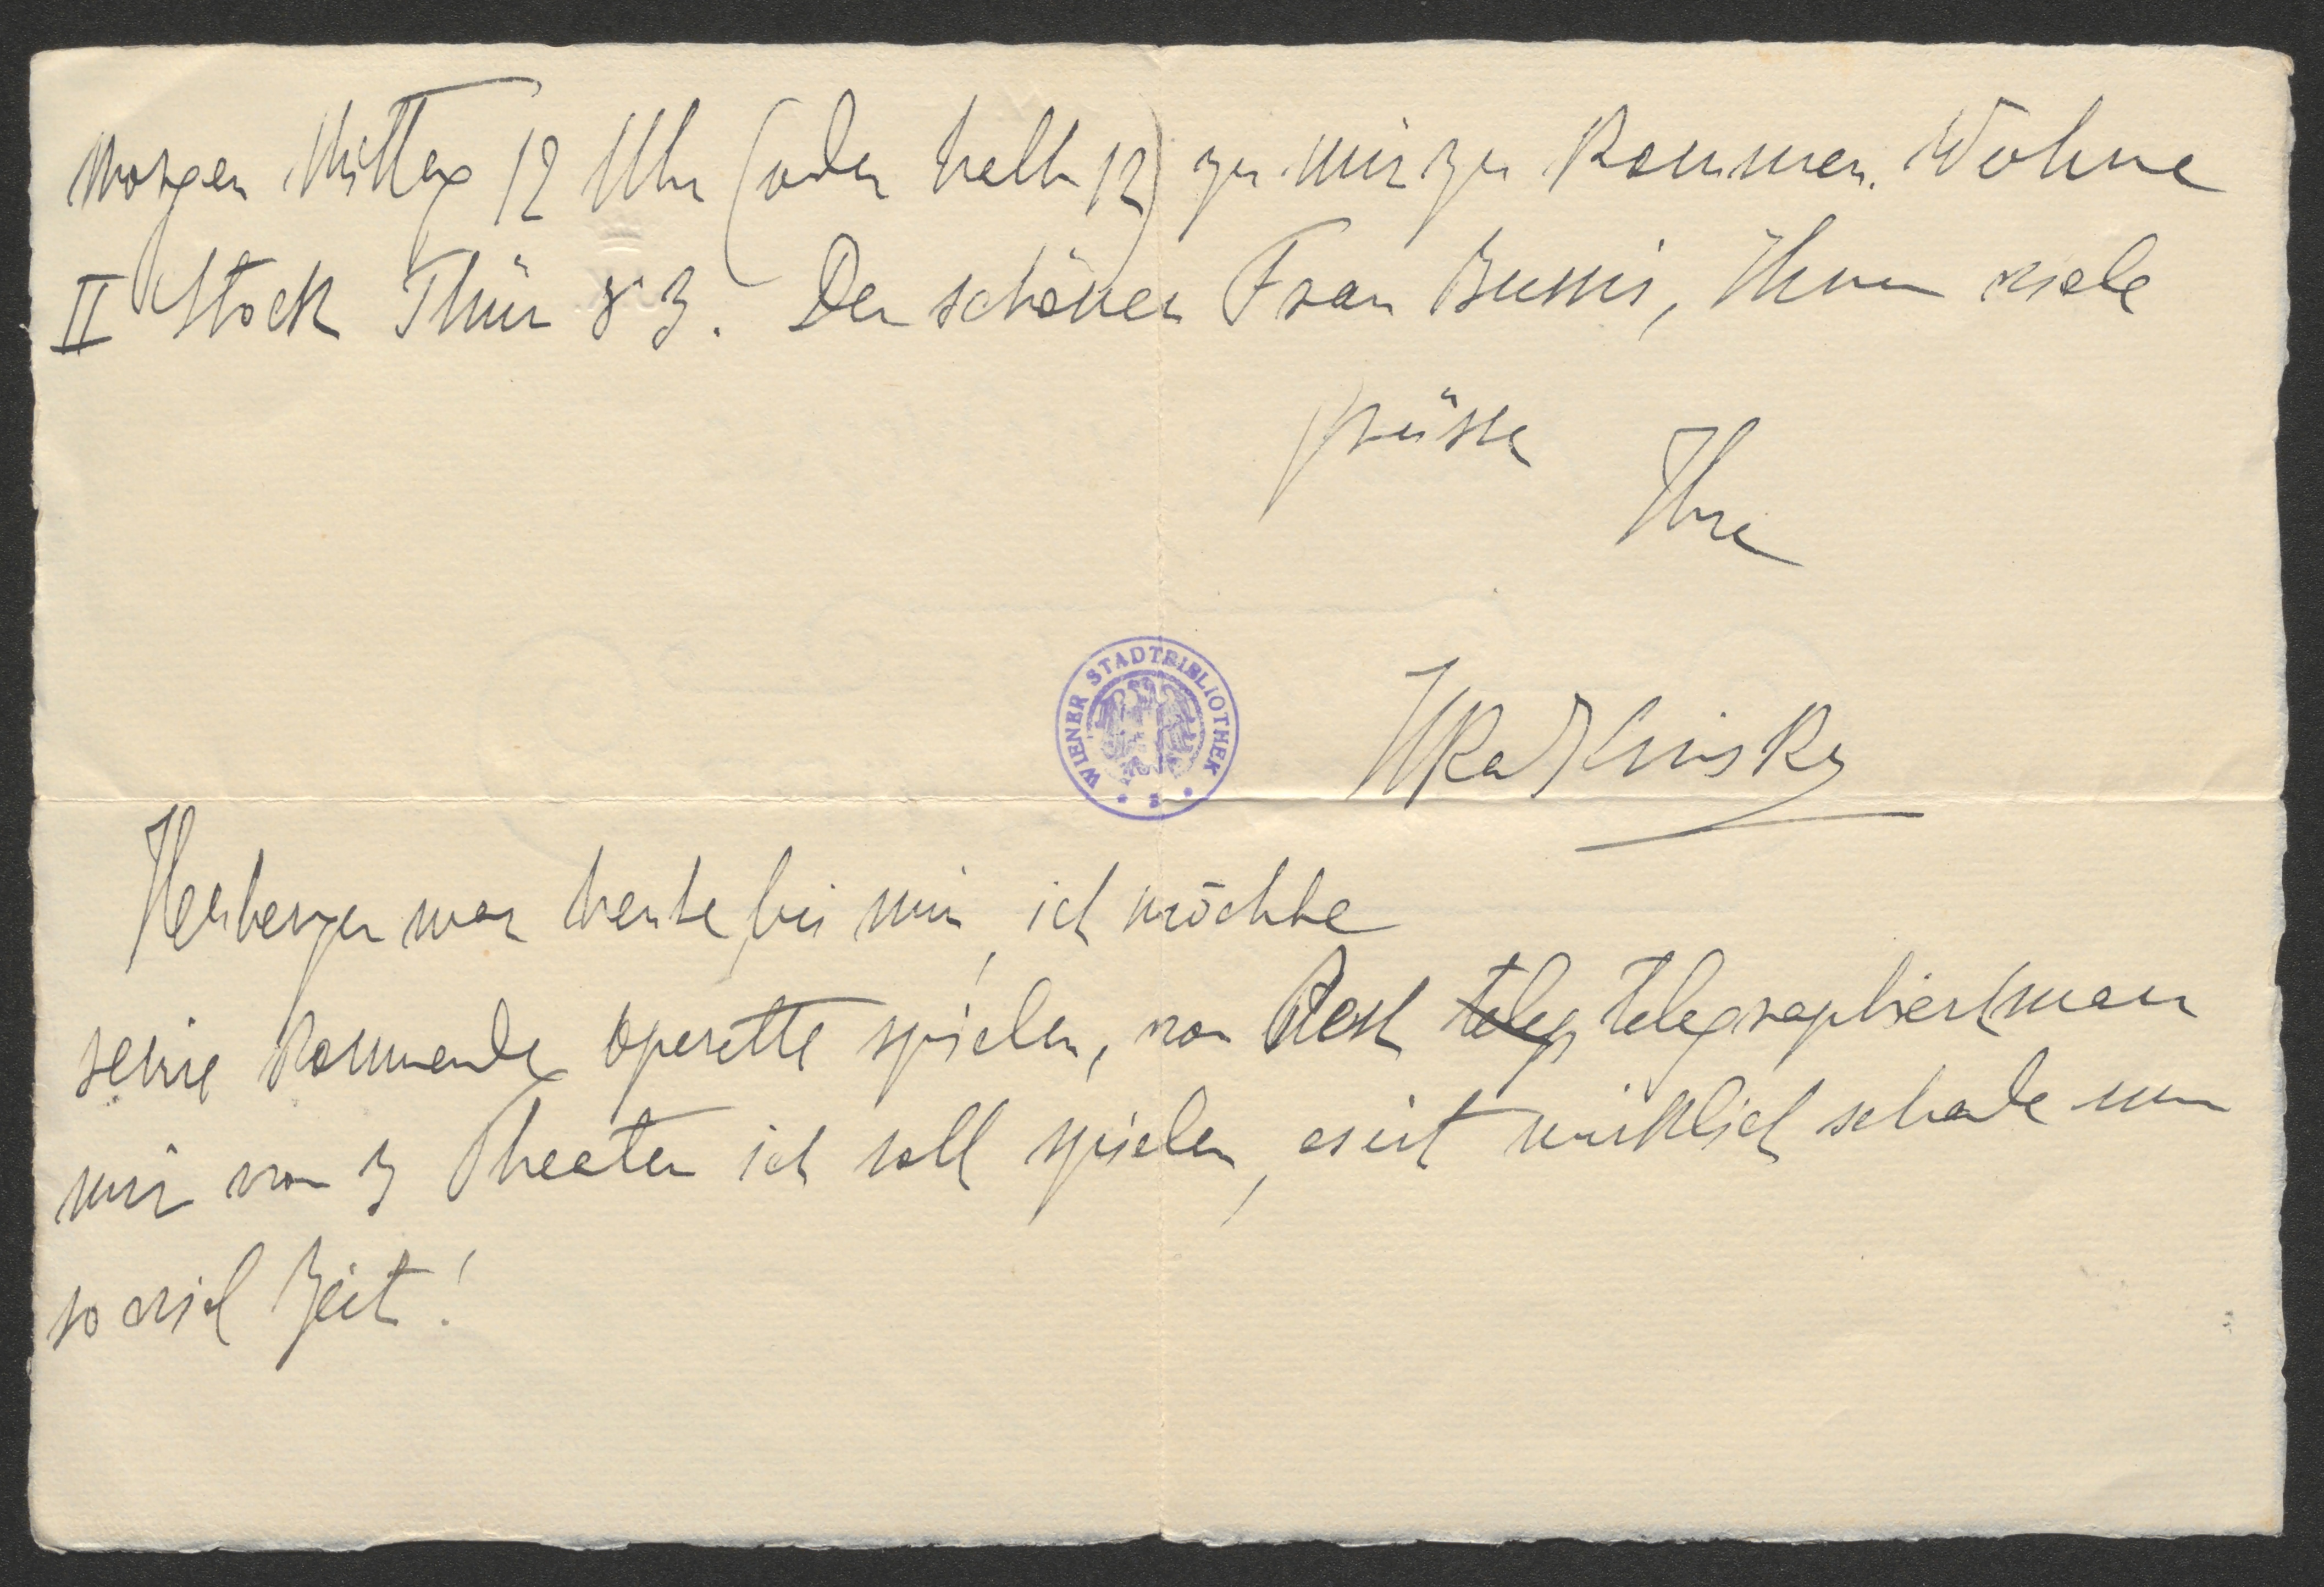 Morgen Mittag 12 Uhr (oder halb 12) zu mir zu kommen. Wohne
II Stock Thür 83. Der schönen Frau Bussi, Ihnen viele
grüsse
Ihre
Ilka
WIENER STADTBIBLIOTHEK
war heute bei mir, ich möchte
seine kommende operette spielen, von Pest teleg telegraphiert man
mir von 3 Theater ich soll spielen, es ist wirklich schade um
so viel Zeit!